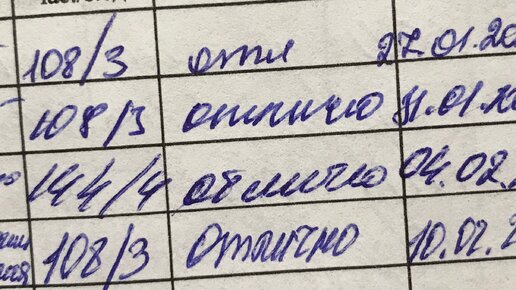 108/3 отл 27.01.20
108/3 отлично 31.01.20
144/4 отлично 04.02.
108/3 отлично 10.02.2